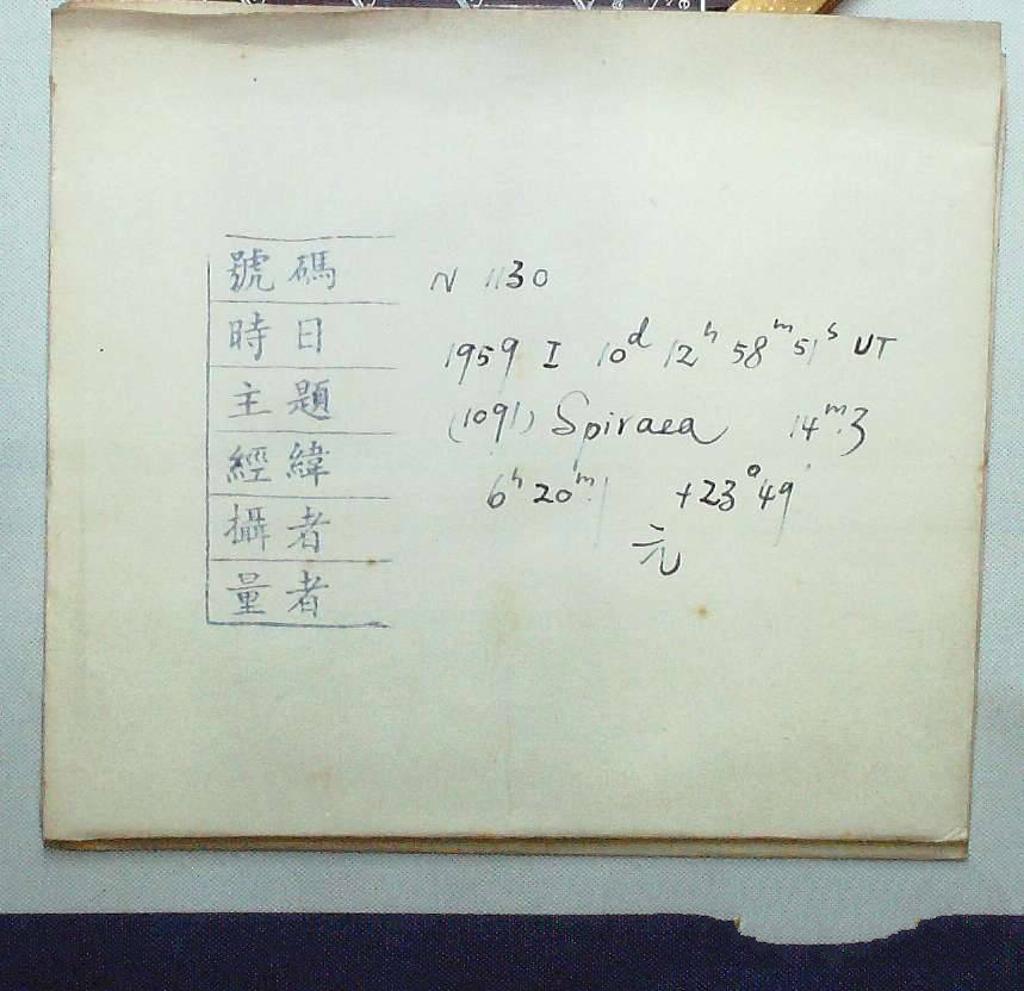 號碼 N 1130
時日 1959 I 10ᵈ 12ʰ 58ᵐ 51ˢ UT
主題 (1091) Spiraea 14ᵐ.3
經緯 6ʰ 20ᵐ.1 +23°49'
攝者 元
量者